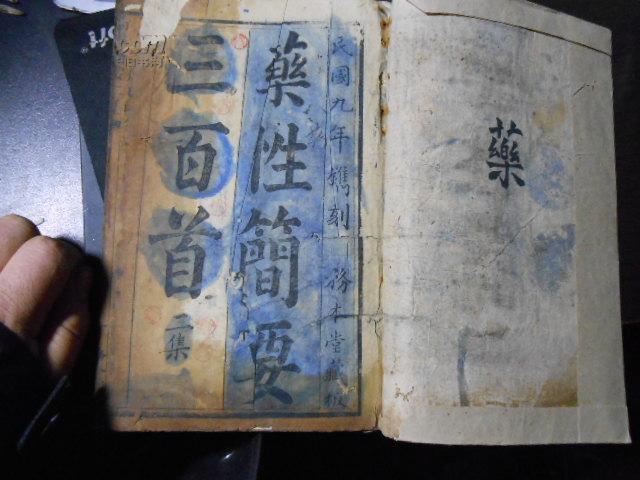 藥
民國九年鐫刻 務本堂藏板
藥性簡要
三百首
二集